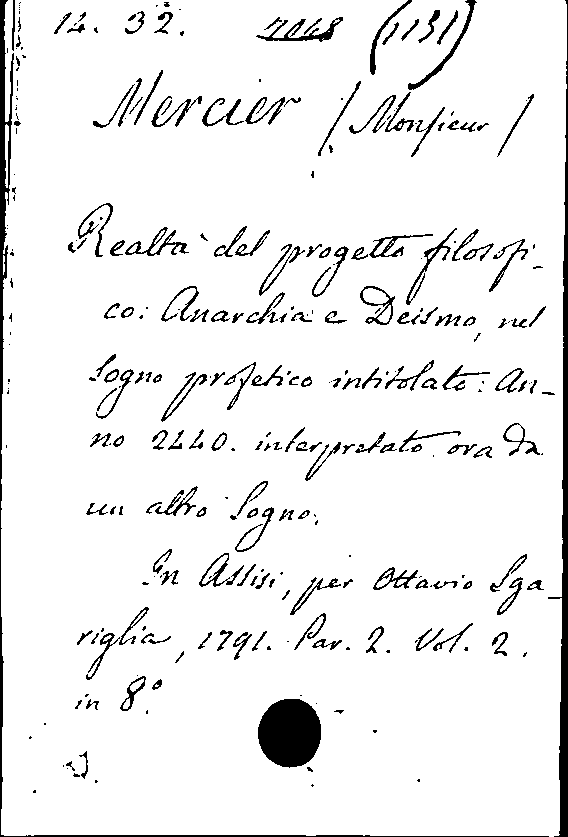 14. 32. 7048 (1131)
Mercier / Monsieur /
Realtà del progetto filosofi-
co: Anarchia e Deismo, nel
Sogno profetico intitolato: An-
no 2440. interpretato ora da
un altro Sogno.
In Assisi, per Ottavio Sga-
riglia, 1791. Par. 2. Vol. 2.
in 8.°